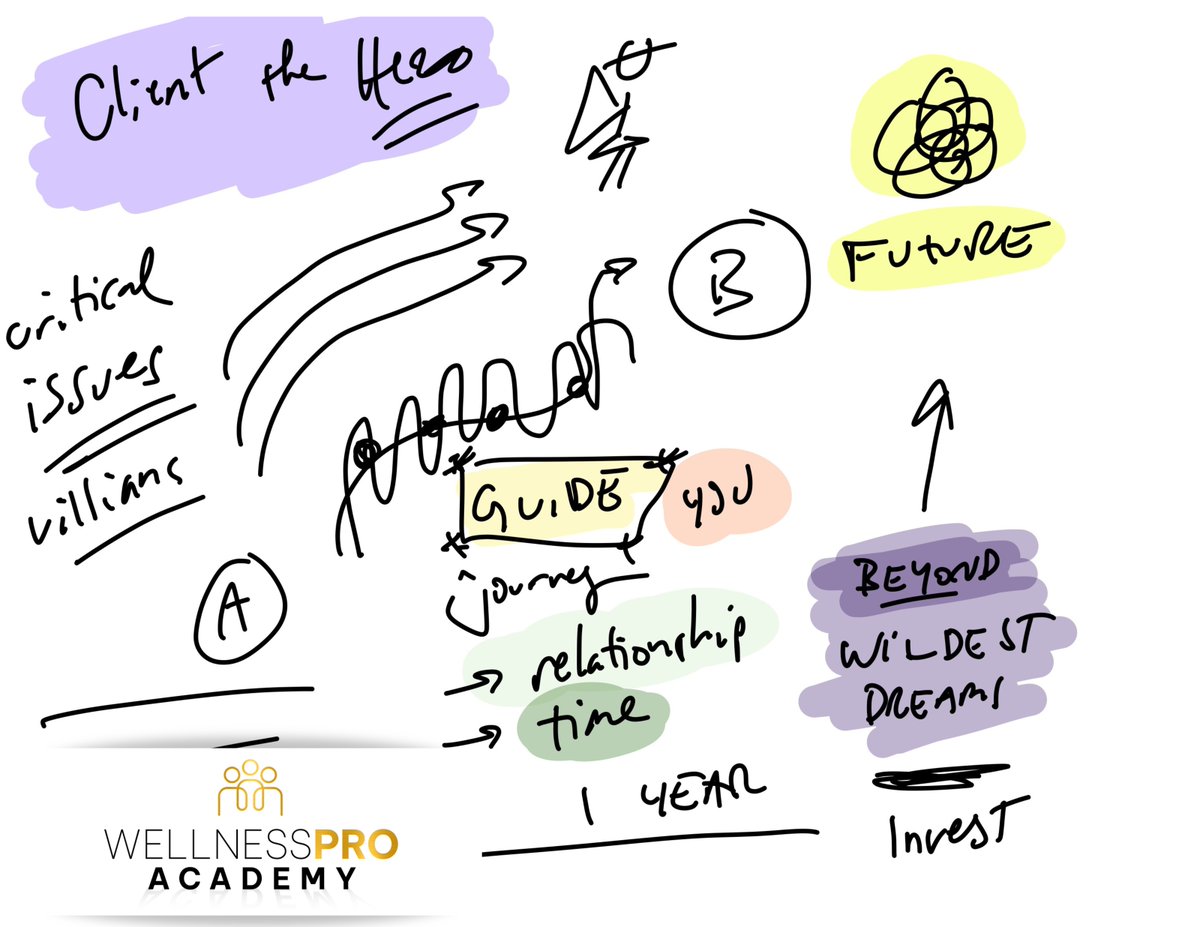 Client the Hero
B
FUTURE
critical
issues
villians
GUIDE
you
journey
A
relationship
time
1 YEAR
BEYOND
WILDEST
DREAMS
Invest
WELLNESSPRO
ACADEMY